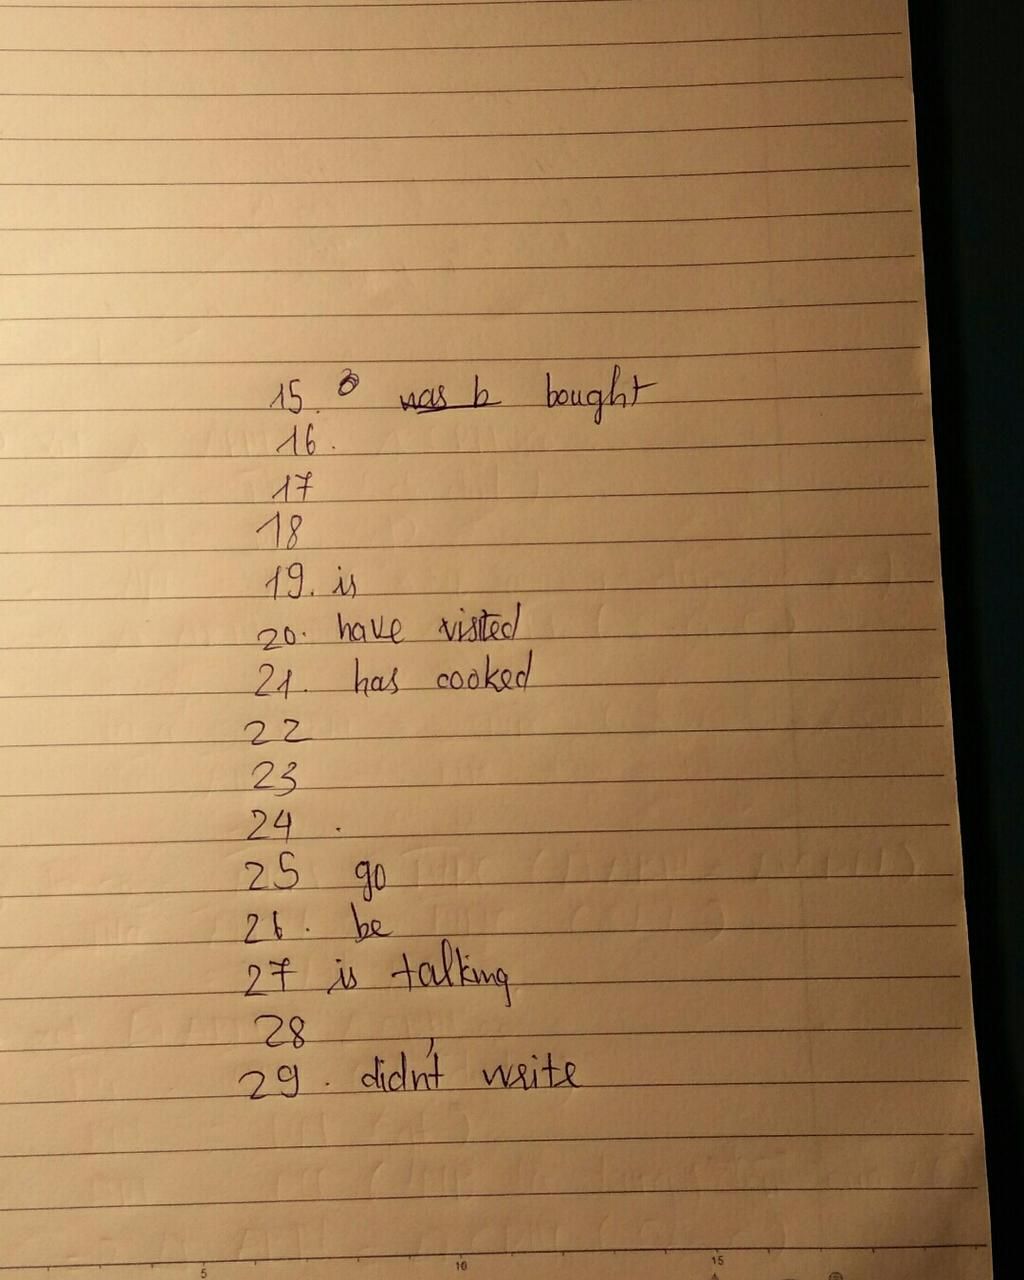 15. was b bought
16.
17
18
19. is
20. have visited
21. has cooked
22
23
24 .
25 go
26. be
27 is talking
28
29. didn't write
5 10 15